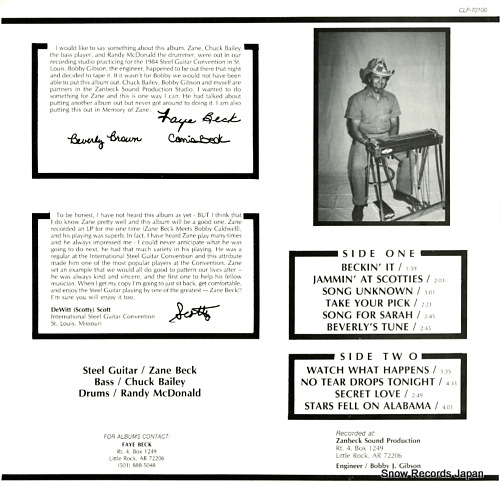 CLP-70100
I would like to say something about this album. Zane, Chuck Bailey
the bass player, and Randy McDonald the drummer, were out in our
recording studio practicing for the 1984 Steel Guitar Convention in St.
Louis. Bobby Gibson, the engineer, happened to be out there that night
and decided to tape it. If it wasn't for Bobby we would not have been
able to put this album out. Chuck Bailey, Bobby Gibson and myself are
partners in the Zanbeck Sound Production Studio. I wanted to do
something for Zane and this is one way I can. He had talked about
putting another album out but never got around to doing it. I am also
putting this out in Memory of Zane.
Faye Beck
Beverly Braun Connie Beck
To be honest, I have not heard this album as yet - BUT I think that
I do know Zane pretty well and this album will be a good one. Zane
recorded an LP for me one time (Zane Beck Meets Bobby Caldwell),
and his playing was superb. In fact, I have heard Zane play many times
and he always impressed me - I could never anticipate what he was
going to do next, he had that much variety in his playing. He was a
regular at the International Steel Guitar Convention and this attribute
made him one of the most popular players at the Convention. Zane
set an example that we would all do good to pattern our lives after --
he was always kind and sincere, and the first one to help his fellow
musician. When I get my copy I'm going to just sit back, get comfortable,
and enjoy the Steel Guitar playing by one of the greatest --- Zane Beck!!
I'm sure you will enjoy it too.
DeWitt (Scotty) Scott
International Steel Guitar Convention
St. Louis, Missouri
Scotty
Steel Guitar / Zane Beck
Bass / Chuck Bailey
Drums / Randy McDonald
FOR ALBUMS CONTACT:
FAYE BECK
Rt. 4, Box 1249
Little Rock, AR 72206
(501) 888-5048
SIDE ONE
BECKIN' IT / 1:39
JAMMIN' AT SCOTTIES / 2:01
SONG UNKNOWN / 3:01
TAKE YOUR PICK / 2:21
SONG FOR SARAH / 2:45
BEVERLY'S TUNE / 2:45
SIDE TWO
WATCH WHAT HAPPENS / 3:35
NO TEAR DROPS TONIGHT / 4:33
SECRET LOVE / 2:49
STARS FELL ON ALABAMA / 4:01
Recorded at:
Zanbeck Sound Production
Rt. 4, Box 1249
Little Rock, AR 72206
Engineer / Bobby J. Gibson
Snow Records Japan(C)